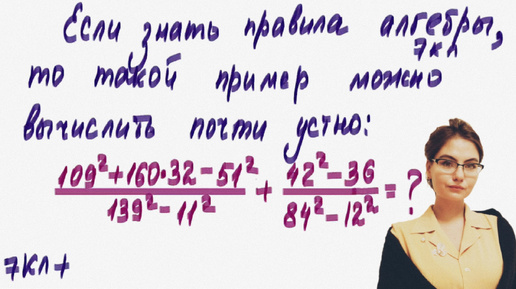 Если знать правила алгебры,
7кл
то такой пример можно
вычислить почти устно:
109²+160·32-51²/139²-11² + 42²-36/84²-12² = ?
7кл+